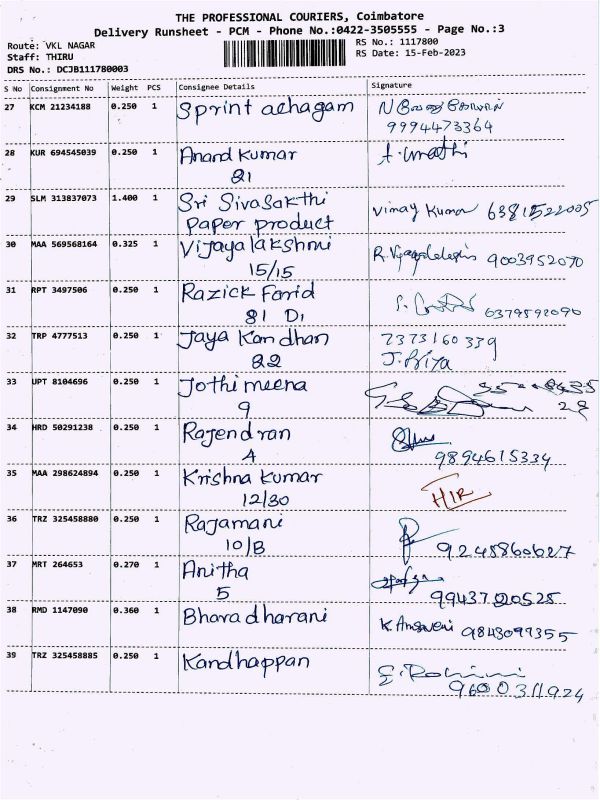 THE PROFESSIONAL COURIERS, Coimbatore
Delivery Runsheet - PCM - Phone No.:0422-3505555 - Page No.:3
Route: VKL NAGAR
RS No.: 1117800
Staff: THIRU
RS Date: 15-Feb-2023
DRS No.: DCJB111780003
S No Consignment No Weight PCS Consignee Details Signature
27 KCM 21234188 0.250 1 Sprint achagam
9994473364
28 KUR 694545039 0.250 1 Anand kumar
21
29 SLM 313837073 1.400 1 Sri Sivasakthi Vinay Kumar 6381522005
paper product
30 MAA 569568164 0.325 1 Vijayalakshmi 9003952070
15/15
31 RPT 3497506 0.250 1 Razick Farid
81 D1 6379592090
32 TRP 4777513 0.250 1 Jaya Kandhan 7373160339
22 J. Priya
33 UPT 8104696 0.250 1 Jothimeena
9
34 HRD 50291238 0.250 1 Rajendran
A 9894615334
35 MAA 298624894 0.250 1 Krishna kumar
12/30
36 TRZ 325458880 0.250 1 Rajamani
10/B 9248860627
37 MRT 264653 0.270 1 Anitha
5 9943720528
38 RMD 1147090 0.360 1 Bharadharani 9843099355
39 TRZ 325458885 0.250 1 Kandhappan
9600311924